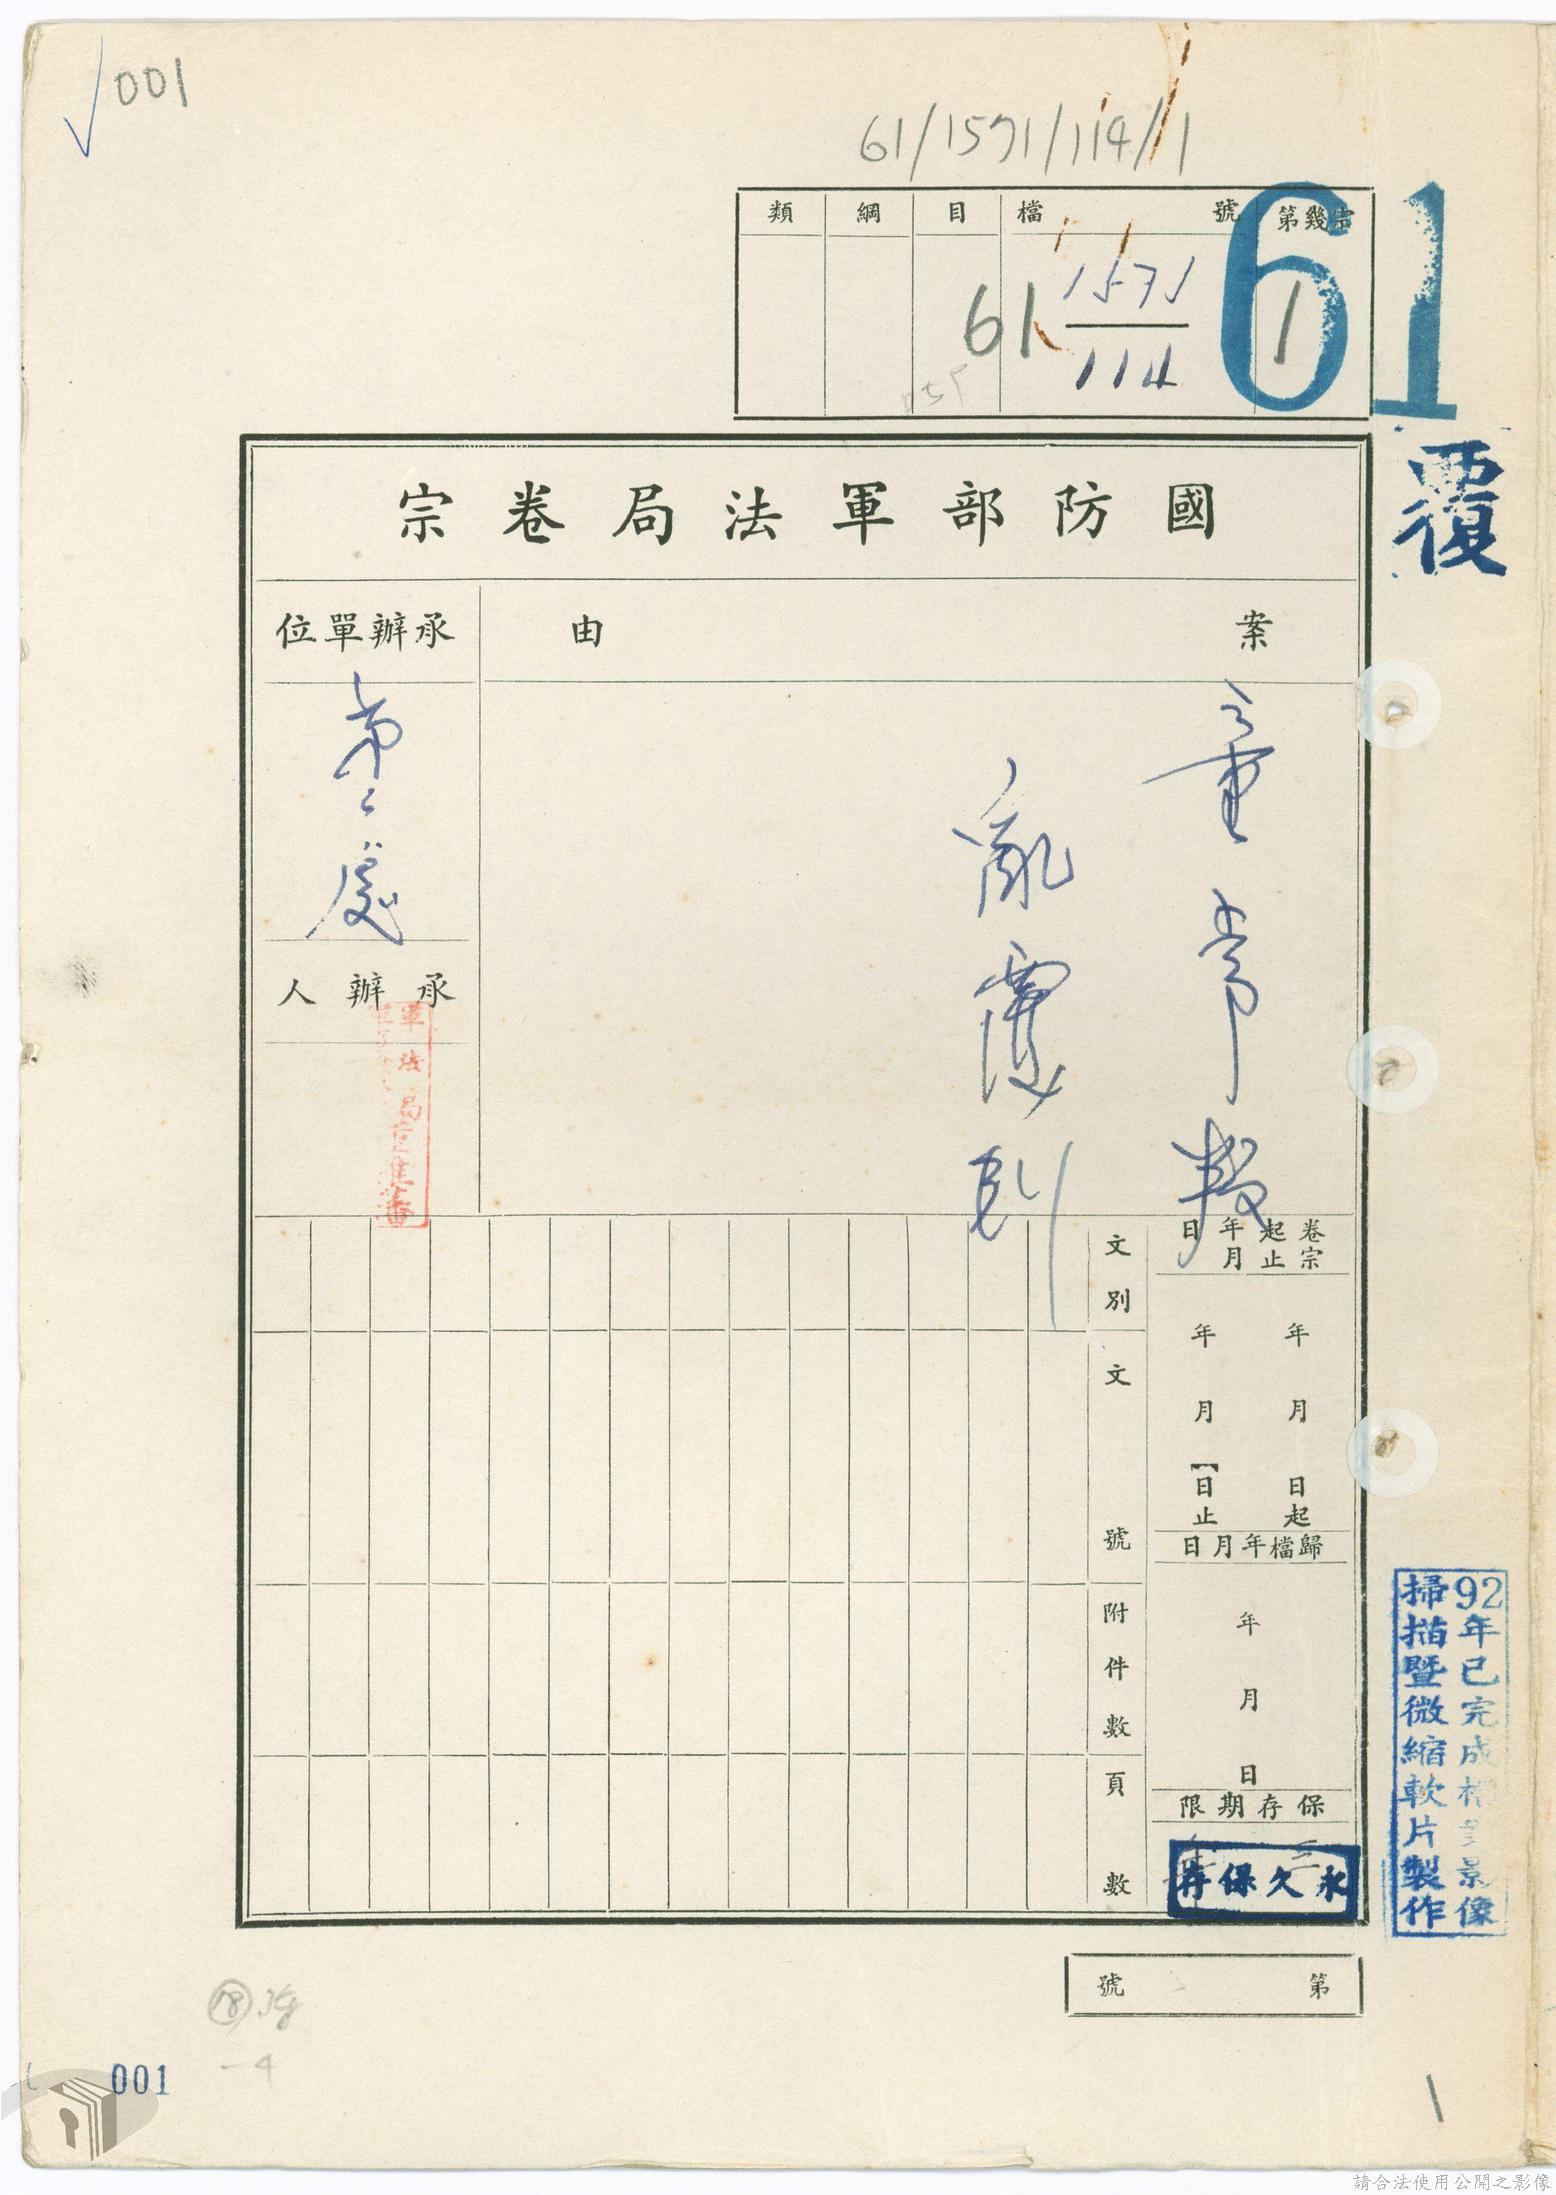 001
61/1571/114/1
類 綱 目 檔號 第幾宗
61 1571/114 1
61
覆
國防部軍法局卷宗
案由
承辦單位
童常
亂覆判
第二處
承辦人
軍法局
卷宗起止年月日
年月日起
年月日止
歸檔年月日
年月日
保存期限
永久保存
文別
文號
附件數
頁數
92年已完成檔案影像
掃描暨微縮軟片製作
第 號
18
001
請合法使用公開之影像